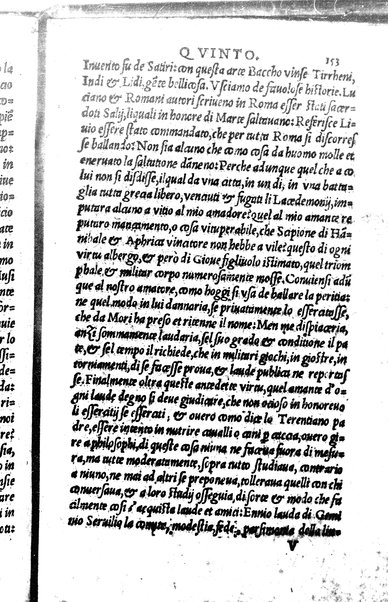 QVINTO. 153
Inuento fu de Satiri: con questa arte Baccho vinse Tirrheni,
Indi & Lidi, gēte bellicosa. Vsciamo de fauolose historie. Lu
ciano & Romani autori scriueno in Roma esser stati sacer
doti Salij, liquali in honore di Marte saltaueno: Referisce Li
uio essere stato commandato, che per tutta Roma si discorres
se ballando: Non sia alcuno che como cosa da huomo molle et
eneruato la saltattione dāneno: Perche adunque quel che a co
lui non si disdisse, ilqual da vna città, in un di, in vna batta
glia tutta grecia libero, venciuti & fugati li Lacedemonij, im
putara alcuno a vitio al mio amadore? quel al mio amante re
putara mancamento, o cosa vituperabile, che Sapione di Ha
nibale & Aphrica vincatore non hebbe a vile? questo di ogni
virtu albergo, & per di Gioue figliuolo istimato, quel triom
phale, & militar corpo numerosamente mosse. Conuiensi adū
que al nostro amatore, como hoggi si vsa de ballare la peritia:
ne quel modo in lui dannaria, se priuatamente lo esseratasse,
che da Mori ha preso et ritenne il nome: Men me dispiaceria,
anzi sommamente laudaria, sel suo grado & conditione il pa
te, & sel tempo il richiede, che in militari giochi, in giostre, in
torniamenti, di se facesse proua, & laude publica ne reportas
se. Finalmente oltra queste antedette virtu, quel amante d'o
gni laude degno si deue giudicare, che non ocioso in honoreuo
li essercitij se esserati, & ouero como dice lo Terentiano pa
dre, essere intento in nutrire caualli o cani a caccia, ouero gi
re a philosophi, di queste cosa niuna ne facena fuora di mesu
ra, ma tutte moderatamente, sopra tutto studiaua, contrario
a niuno, ne mai ad altri se preponeua, tolleraua quelli con chi
conuersaua, & a loro studij osseguia, di sorte & modo che fa
cilmente cosi s'acquista laude et amici: Ennio lauda di Gemi
no Seruilio la comita, modestia, fede, parsimonia della lin-
V